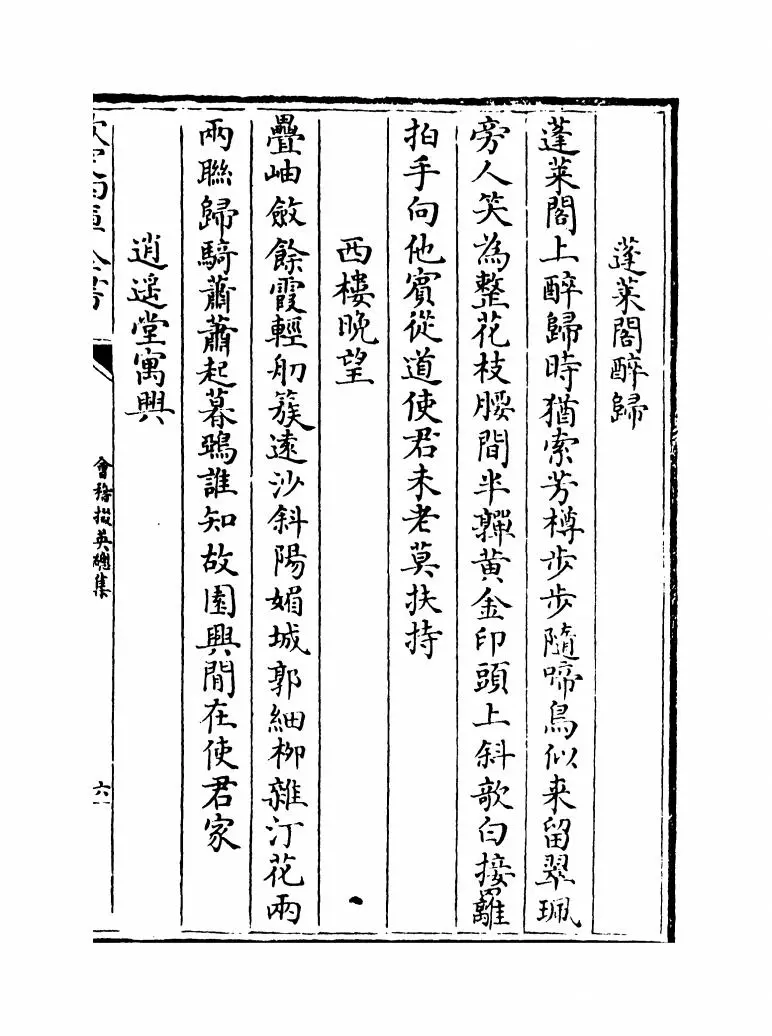 蓬萊閣醉歸
蓬萊閣上醉歸時猶索芳樽步步隨啼鳥似来留翠珮
旁人笑為整花枝腰間半嚲黄金印頭上斜欹白接䍦
拍手向他賓從道使君未老莫扶持
西樓晚望
疊岫斂餘霞輕舠簇逺沙斜陽媚城郭細柳雜汀花兩
兩聯歸騎蕭蕭起暮鴉誰知故園興閒在使君家
逍遥堂寓興
欽定四庫全書
會稽掇英總集
六